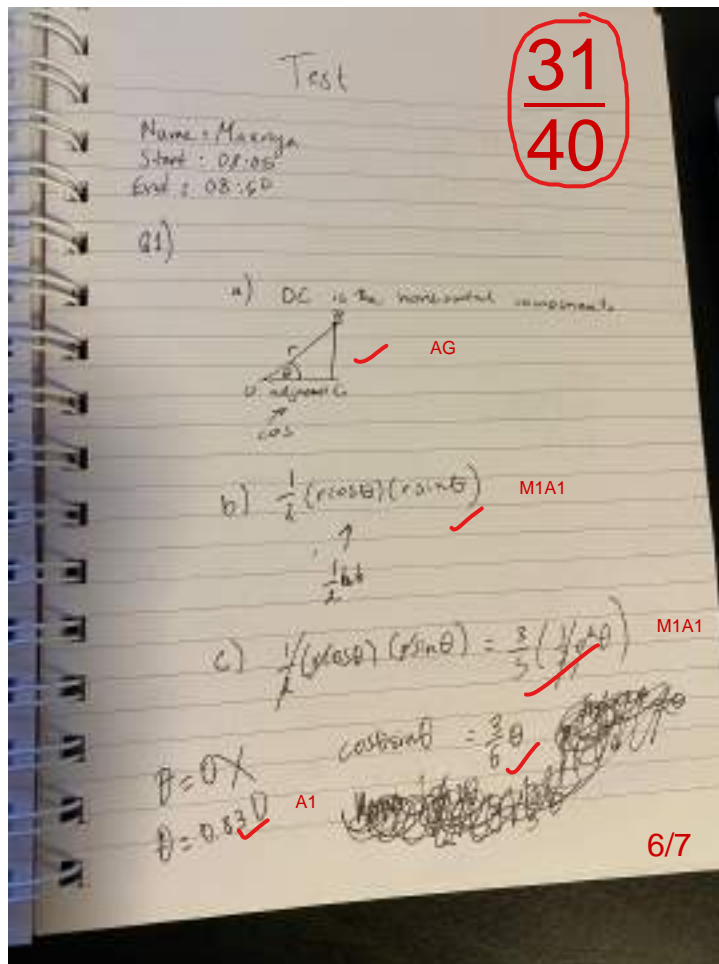 Test
31
40
Name: Maanya
Start: 08:05
End: 08:50
Q1)
a) DC is the horizontal component
B
r
θ
O adjacent C
AG
↗
cos
b) 1/2 (rcosθ)(rsinθ)
M1A1
↑
1/2 bh
c) 1/2 (rcosθ)(rsinθ) = 3/5 (1/2 r²θ)
M1A1
cosθsinθ = 3/5 θ
θ=0 X
θ=0.830
A1
6/7